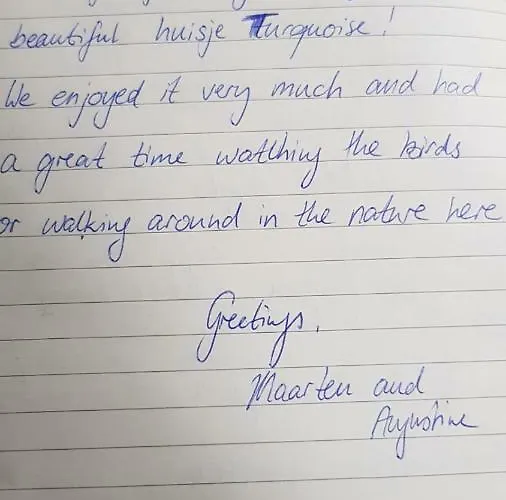 beautiful huisje Turquoise!
We enjoyed it very much and had
a great time watching the birds
or walking around in the nature here
Greetings,
Maarten and
Augustine